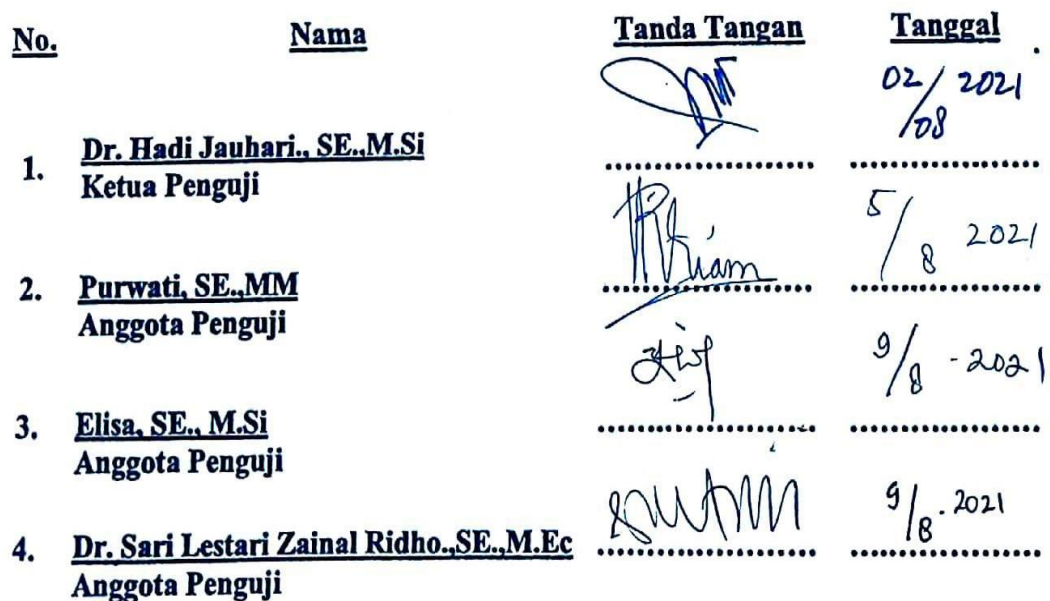 No. Nama Tanda Tangan Tanggal
02/08 2021
1. Dr. Hadi Jauhari., SE.,M.Si
Ketua Penguji
5/8 2021
2. Purwati, SE.,MM
Anggota Penguji
9/8 - 2021
3. Elisa, SE., M.Si
Anggota Penguji
9/8 . 2021
4. Dr. Sari Lestari Zainal Ridho.,SE.,M.Ec
Anggota Penguji